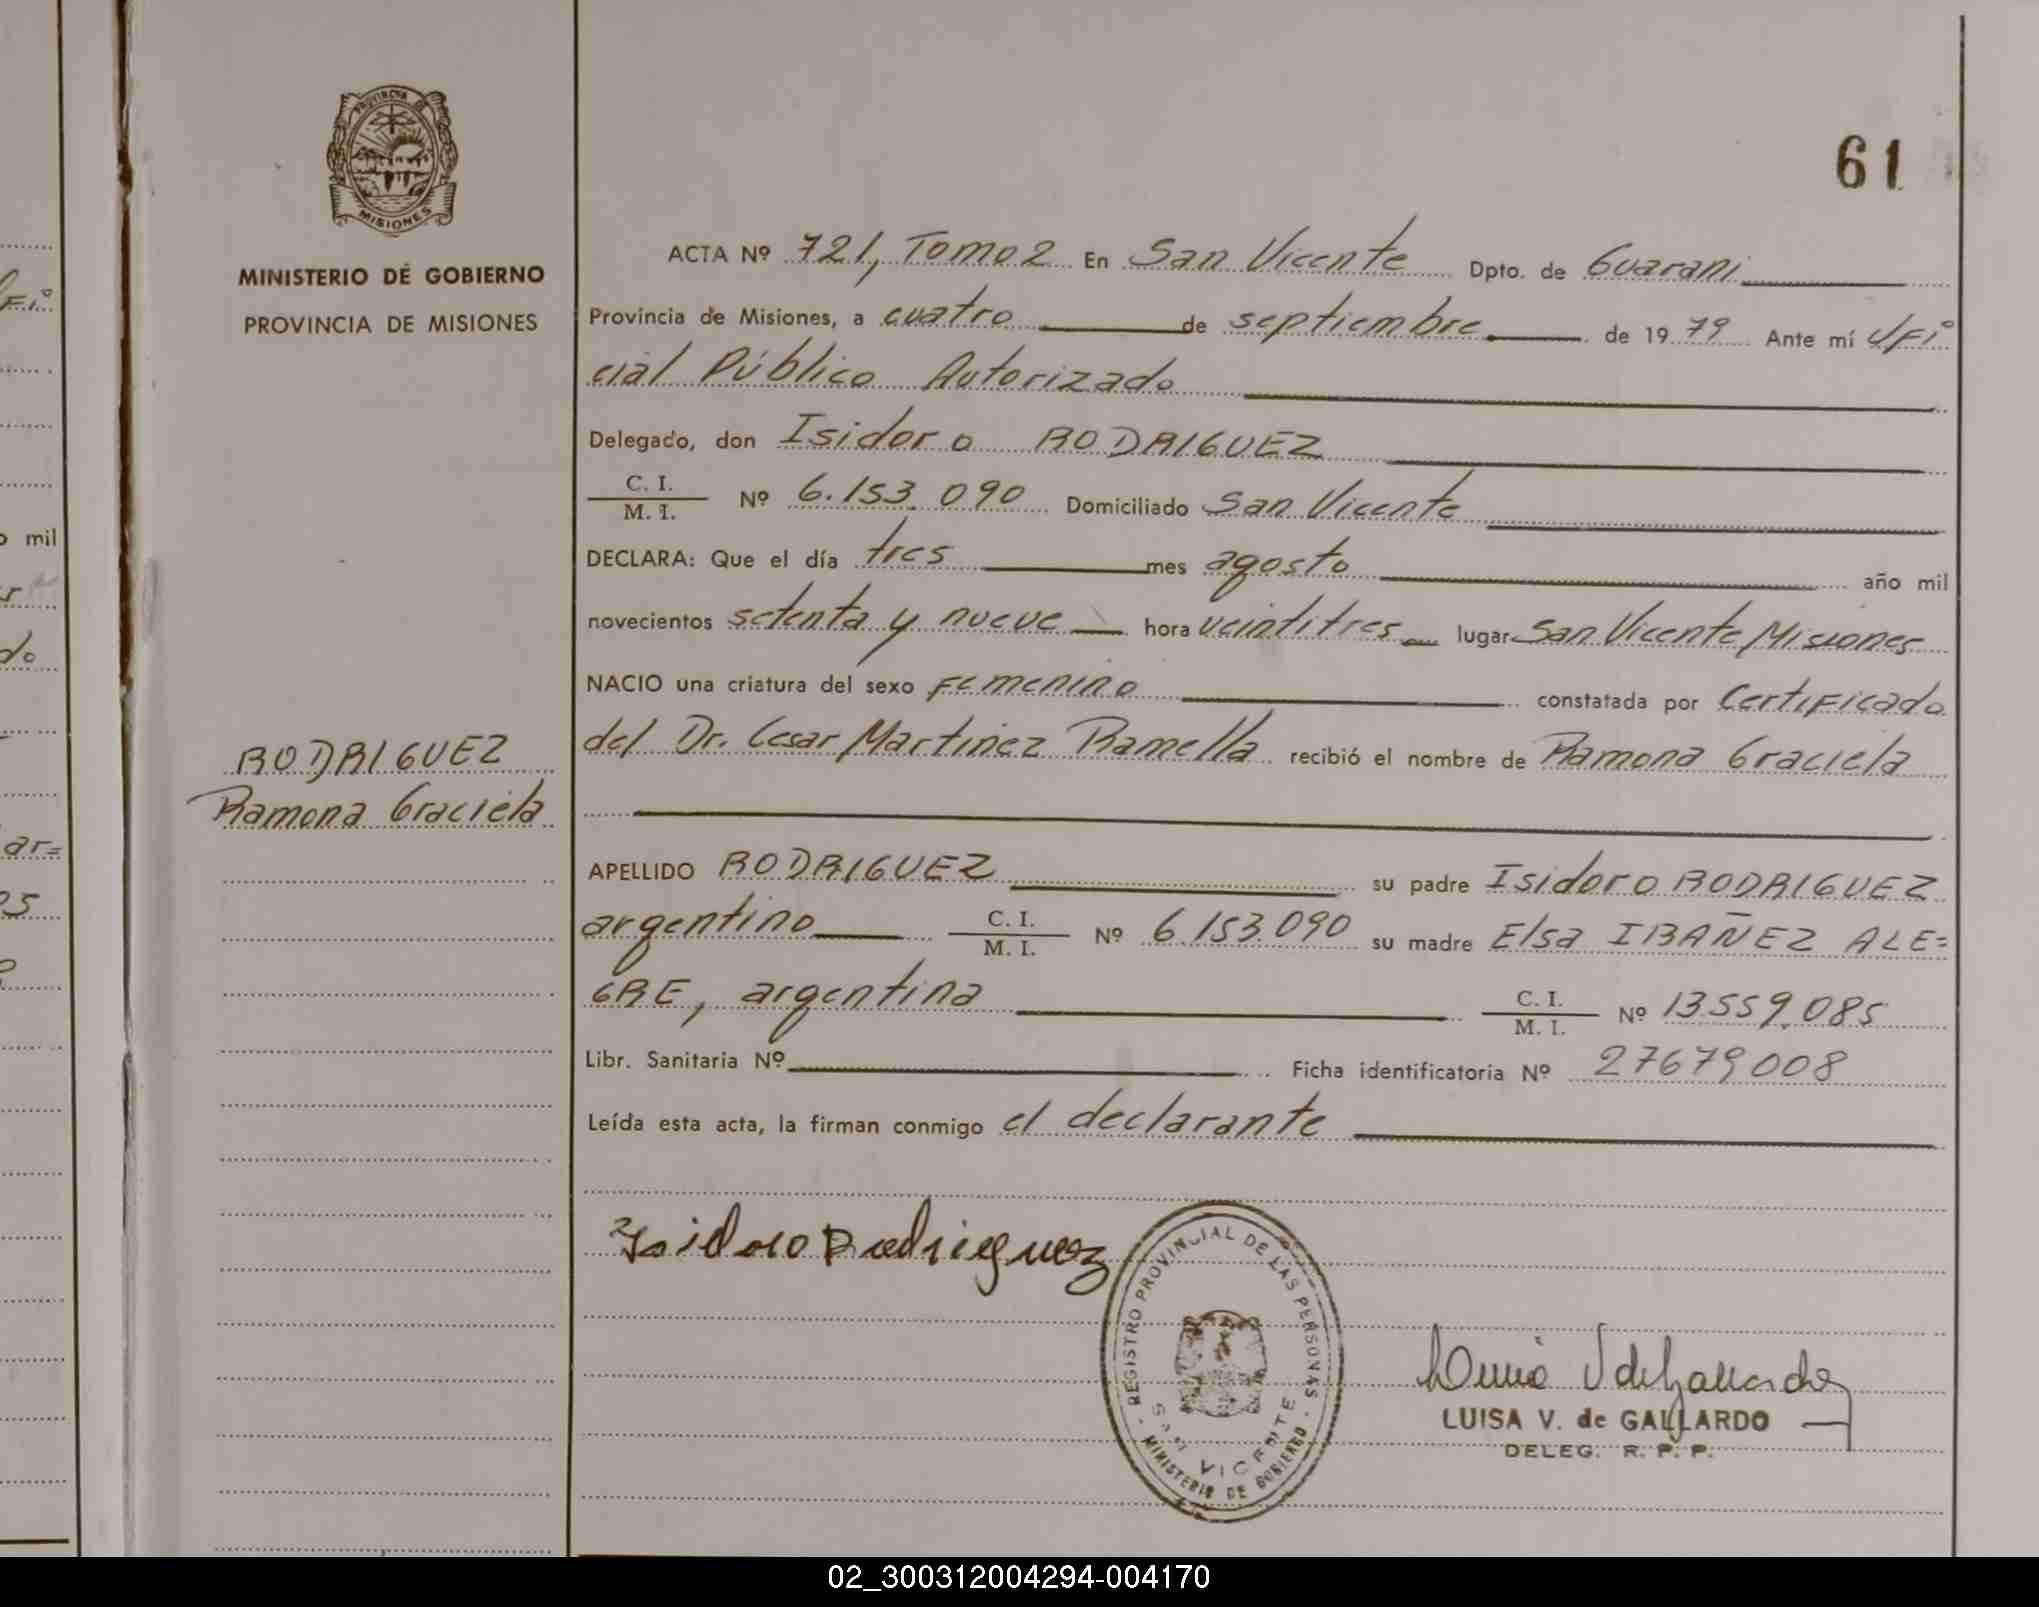 PROVINCIA DE
MISIONES
MINISTERIO DE GOBIERNO
PROVINCIA DE MISIONES
RODRIGUEZ
Ramona Graciela
61
ACTA Nº 721, Tomo 2 En San Vicente Dpto. de Guarani
Provincia de Misiones, a cuatro de septiembre de 19 79 Ante mí Ofi=
cial Público Autorizado
Delegado, don Isidoro RODRIGUEZ
C. I.
M. I. Nº 6.153.090 Domiciliado San Vicente
DECLARA: Que el día tres mes agosto año mil
novecientos setenta y nueve hora veintitres lugar San Vicente Misiones
NACIO una criatura del sexo Femenino constatada por Certificado
del Dr. Cesar Martinez Ramella recibió el nombre de Ramona Graciela
APELLIDO RODRIGUEZ su padre Isidoro RODRIGUEZ
argentino C. I. M. I. Nº 6.153.090 su madre Elsa IBAÑEZ ALE=
GRE, argentina C. I. M. I. Nº 13.559.085
Libr. Sanitaria Nº Ficha identificatoria Nº 27679008
Leída esta acta, la firman conmigo el declarante
Isidoro Rodrieguez
REGISTRO PROVINCIAL DE LAS PERSONAS
SAN VICENTE
MINISTERIO DE GOBIERNO
LUISA V. de GALLARDO
DELEG. R. P. P.
mil
do
ar=
02_300312004294-004170